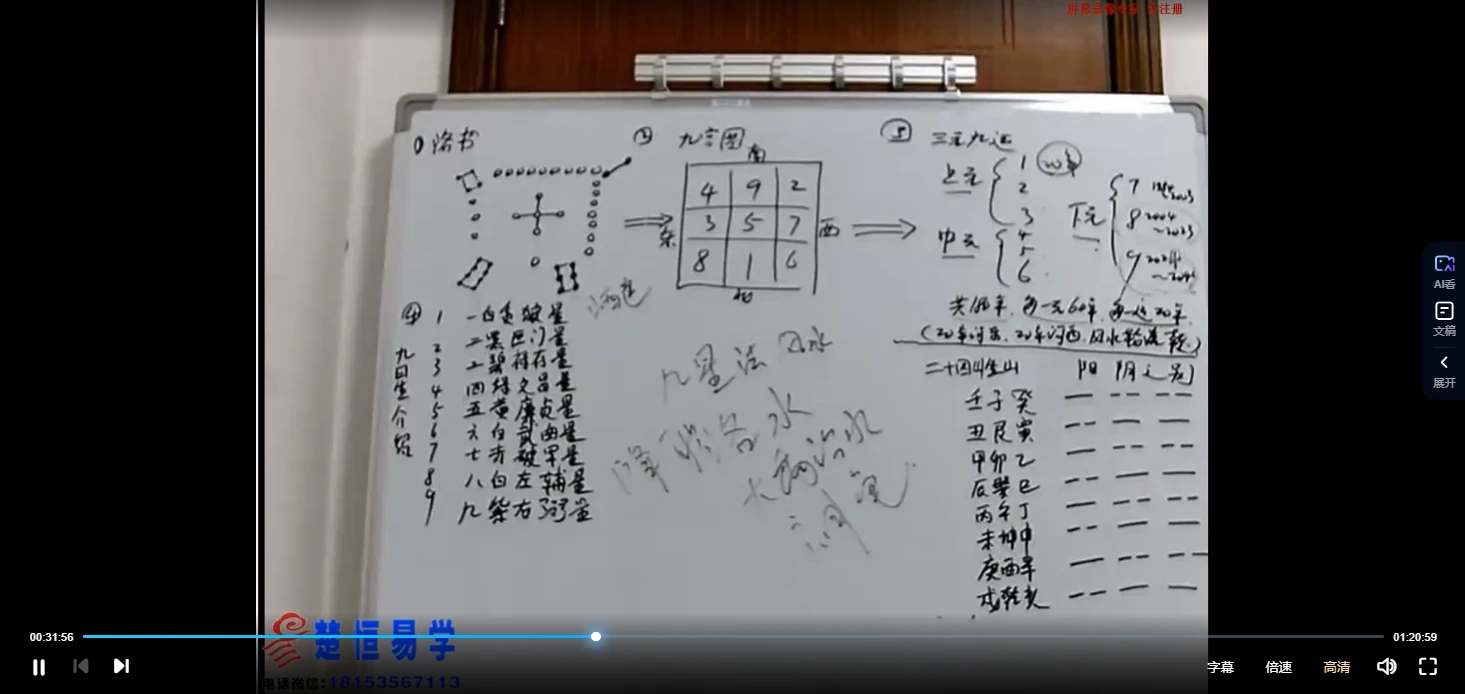 ① 洛书
② 九宫图
南
4 9 2
东 3 5 7 西
8 1 6
北
③ 三元九运
20年
上元
1
2
3
中元
4
5
6
下元
7
8 2004~2023
9
共180年,每一元60年,每一运20年.
(20年河东,20年河西,风水轮流转.)
④ 九星介绍
1 一白贪狼星
2 二黑巨门星
3 三碧禄存星
4 四绿文昌星
5 五黄廉贞星
6 六白武曲星
7 七赤破军星
8 八白左辅星
9 九紫右弼星
九星法 风水
二十四山坐山 阳 阴之别
壬子癸
丑艮寅
甲卯乙
辰巽巳
丙午丁
未坤申
庚酉辛
戌乾亥
楚恒易学
电话微信:18153567113
00:31:56
01:20:59
字幕
倍速
高清
AI看
文稿
展开